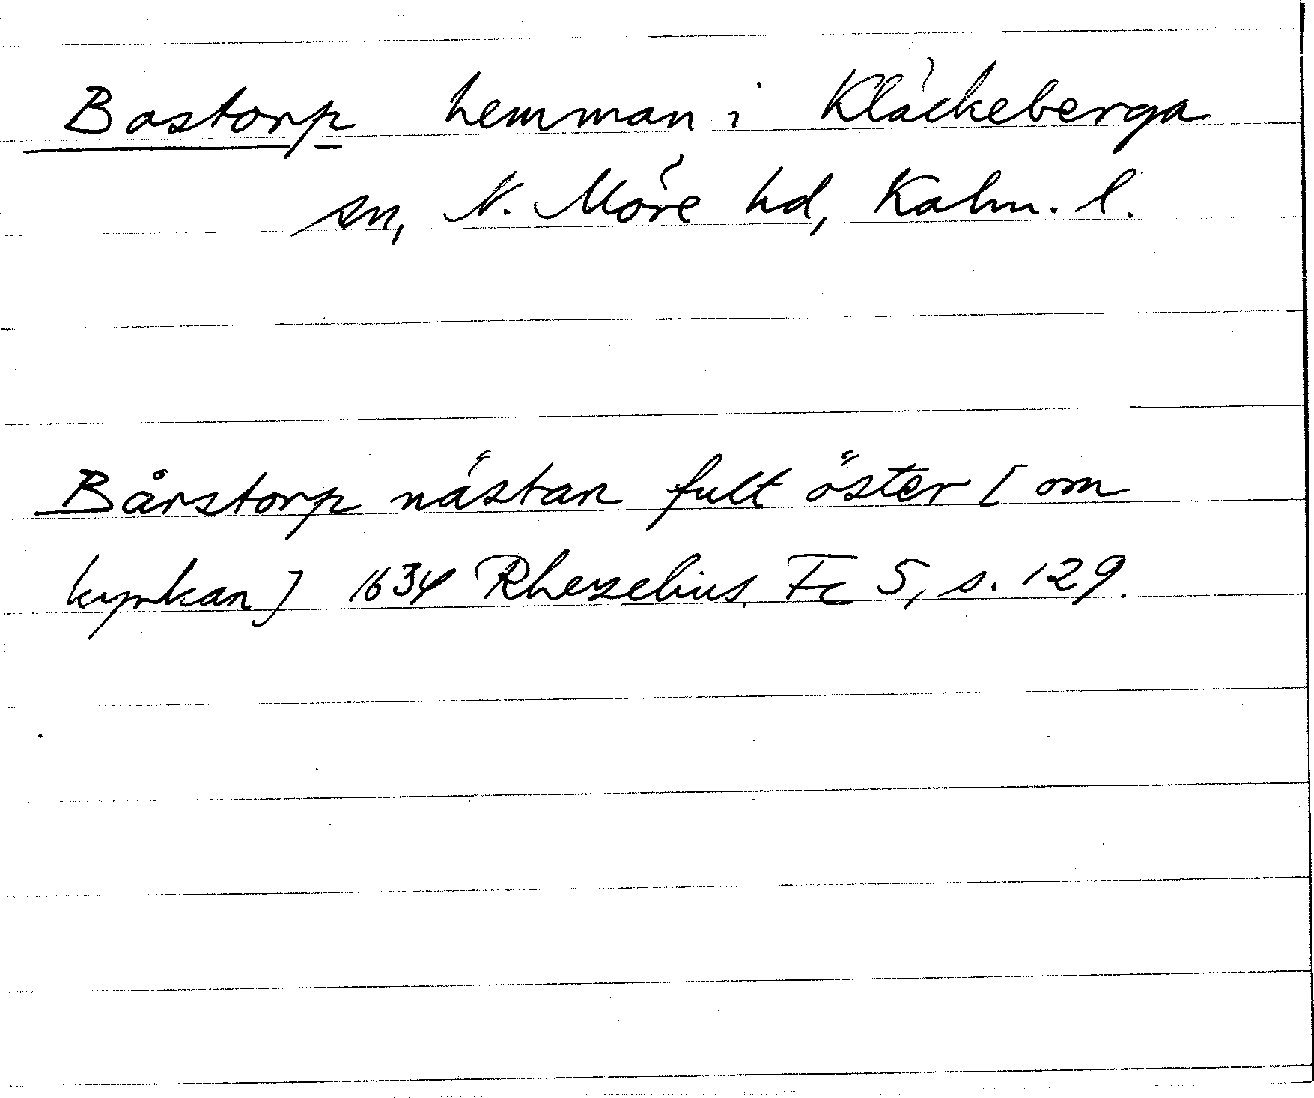 Bastorp hemman i Kläckeberga
sn, N. Möre hd, Kalm. l.
Bårstorp nästan fult öster [om
kyrkan] 1634 Rhezelius Fc 5, s. 129.